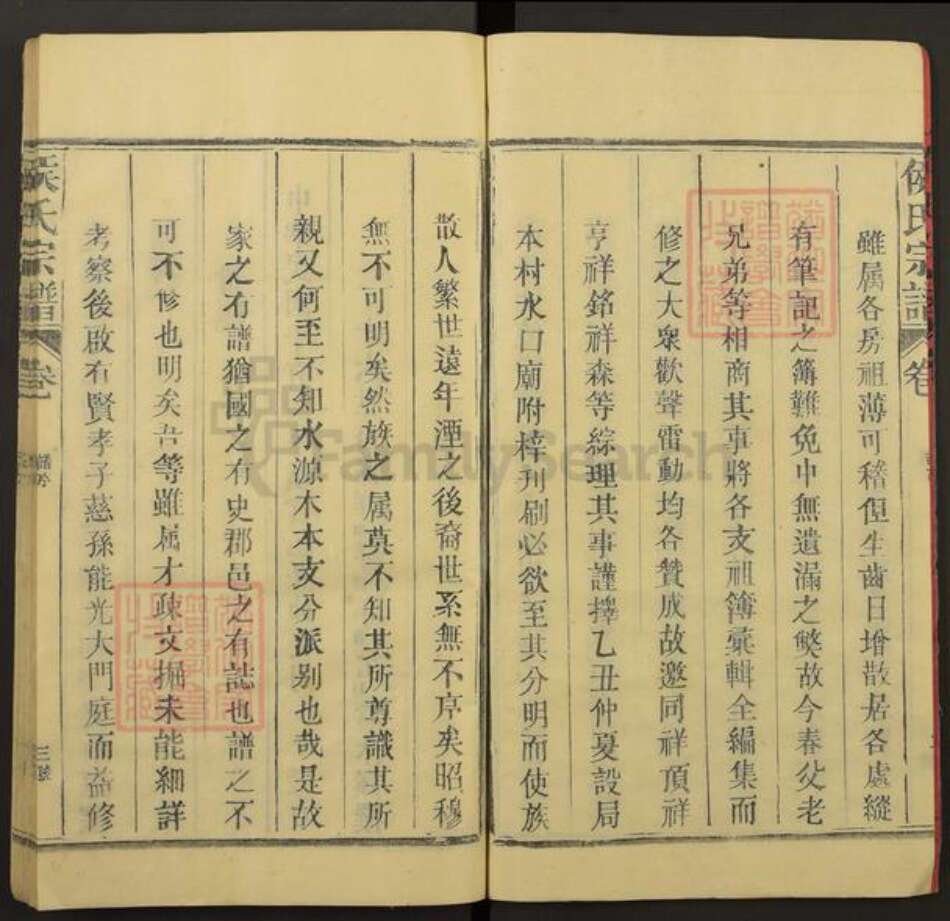 侯氏宗譜
卷
雖属各房祖薄可稽但生齒日增散居各處縱
有筆記之簿難免中無遺漏之獘故今春父老
兄弟等相商其事將各支祖簿彙輯全編集而
修之大衆歡聲雷動均各贊成故邀同祥頂祥
亨祥銘祥森等綜理其事謹擇乙丑仲夏設局
本村水口廟附梓刋刷必欲至其分明而使族
散人繁世遠年湮之後裔世系無不序矣昭穆
無不可明矣然族之属莫不知其所尊識其所
親又何至不知水源木本支分派别也哉是故
家之有譜猶國之有史郡邑之有誌也譜之不
可不修也明矣吾等雖属才疎文掘未能細詳
考察後啟有賢孝子慈孫能光大門庭而益修
侯氏宗譜
卷
三
FamilySearch